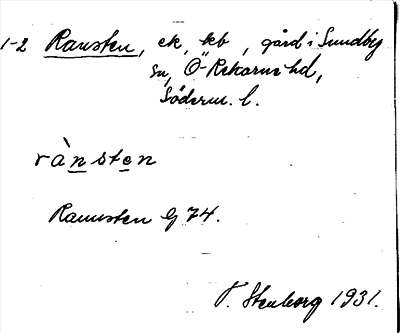 1-2 Ramsten, ek, kb, gård i Sundby
sn, Ö-Rekarne hd,
Söderm. l.
rànsten
Ramsten G 74.
V. Stenborg 1931.